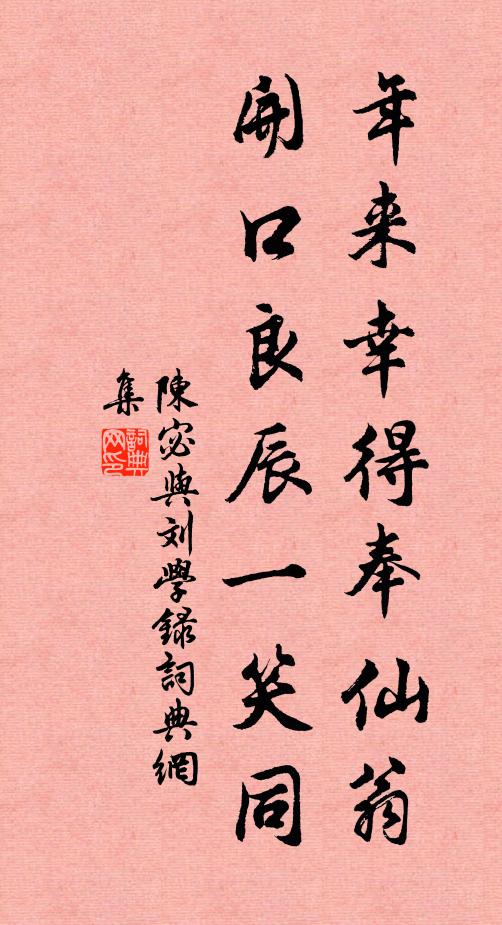 年来幸得奉仙翁
開口良辰一笑同
陳宓與刘學録詞典網
集
詞典
网印